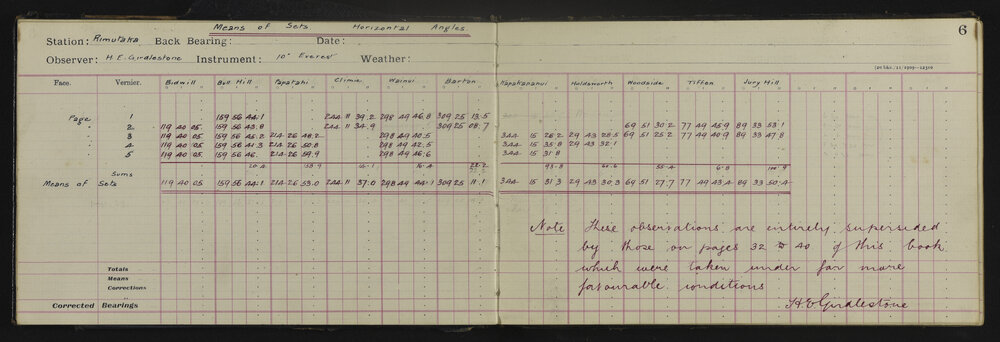 Means of Sets Horizontal Angles.
6
Station: Rimutaka Back Bearing: Date:
Observer: H.E. Girdlestone Instrument: 10" Everest Weather:
Face. Vernier. Bidwill Bull Hill Papatahi Climie Wainui Barton Kapakapanui Holdsworth Woodside Tiffen Jury Hill
Page 1 159 56 44.1 244 11 39.2 298 49 46.8 309 25 13.5
" 2 119 40 05. 159 56 43.8 244 11 34.9 309 25 08.7 69 51 30.2 77 49 45.9 89 33 53.1
" 3 119 40 05. 159 56 45.2 214 26 48.2 298 49 40.5 344 15 26.2 29 43 28.5 69 51 25.2 77 49 40.9 89 33 47.8
" 4 119 40 05. 159 56 41.3 214 26 50.8 298 49 42.5 344 15 35.8 29 43 32.1
" 5 119 40 05. 159 56 46. 214 26 59.9 298 49 46.6 344 15 31.8
Sums 20.4 158.9 14.1 16.4 22.2 93.8 60.6 55.4 6.8 100.9
Means of Sets 119 40 05 159 56 44.1 214 26 53.0 244 11 37.0 298 49 44.1 309 25 11.1 344 15 31.3 29 43 30.3 69 51 27.7 77 49 43.4 89 33 50.4
Note These observations are entirely superseded
by those on pages 32 to 40 of this book
which were taken under far more
favourable conditions
H E Girdlestone
Totals
Means
Corrections
Corrected Bearings